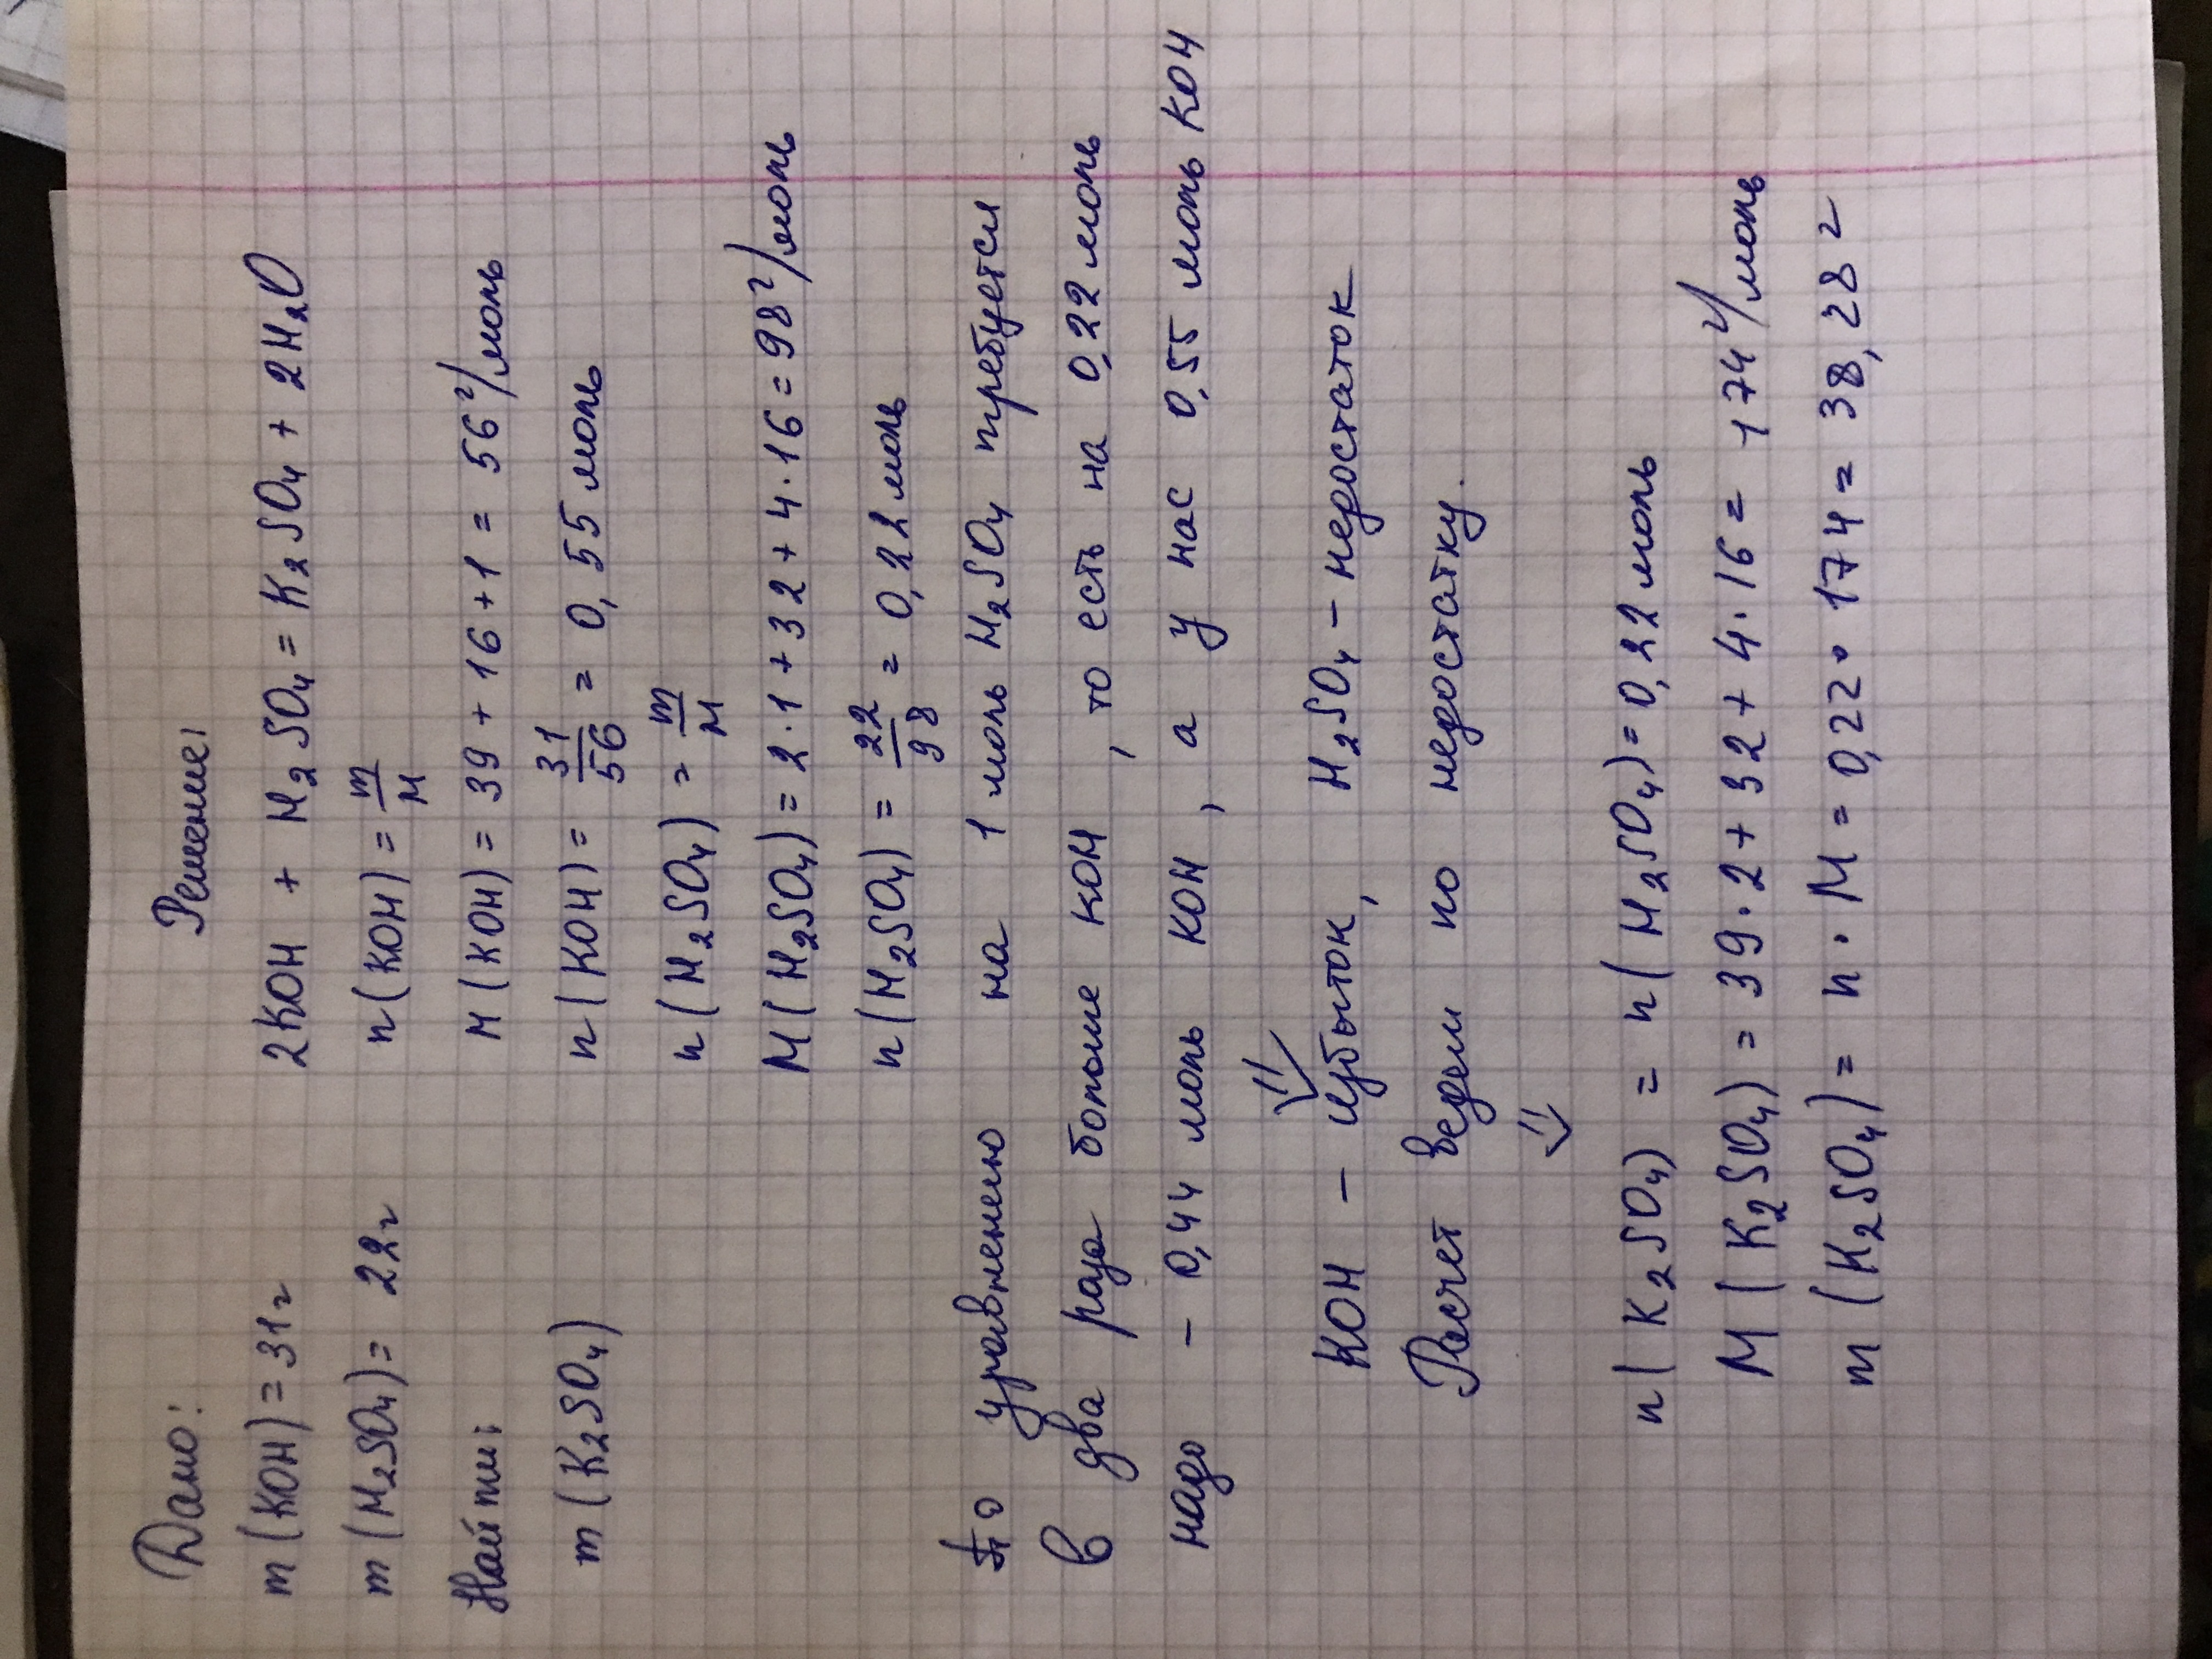 Дано:
m (KOH) = 31г
m (H₂SO₄) = 22г
Найти:
m (K₂SO₄)
Решение:
2KOH + H₂SO₄ = K₂SO₄ + 2H₂O
n (KOH) = m/M
M (KOH) = 39 + 16 + 1 = 56 г/моль
n (KOH) = 31/56 = 0,55 моль
n (H₂SO₄) = m/M
M (H₂SO₄) = 2·1 + 32 + 4·16 = 98 г/моль
n (H₂SO₄) = 22/98 = 0,22 моль
По уравнению на 1 моль H₂SO₄ требуется
в два раза больше KOH, то есть на 0,22 моль
надо - 0,44 моль KOH, а у нас 0,55 моль KOH
⇓
KOH - избыток, H₂SO₄ - недостаток
Расчет ведем по недостатку.
⇓
n (K₂SO₄) = n (H₂SO₄) = 0,22 моль
M (K₂SO₄) = 39·2 + 32 + 4·16 = 174 г/моль
m (K₂SO₄) = n · M = 0,22 · 174 = 38,28 г